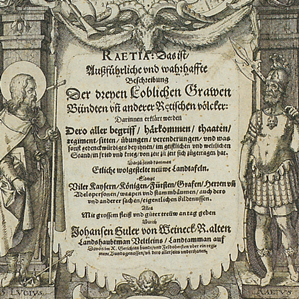 RAETIA: Das ist
Außführliche vnd wahrhaffte
Beschreibung
Der dreyen Loblichen Grawen
Bündten vñ anderer Retischen völcker:
Darinnen erklärt werden
Dero aller begriff / härkommen / thaaten/
regiment / sitten / übungen / verenderungen / vnd was
sonst gedenckwürdiges bey jhnen / im geistlichen vnd weltlichen
Stand / in frid vnd krieg / von zeit zu zeit sich zugetragen hat.
Etliche wolgestelte neuwe Landtaflen.
Sampt
Viler Kaysern / Königen / Fürsten / Grafen / Herren vñ
Adelspersonen / waapen vnd stammbäumen / auch
vnd anderer sachen / eigentlichen Bildnussen.
Alles
Mit grossem fleiß vnd guter trüw an tag geben
Durch
Johansen Guler von Weineck R. alten
Landshaubtman Veltleins / Landtamman auf
LVCIVS
RAETVS